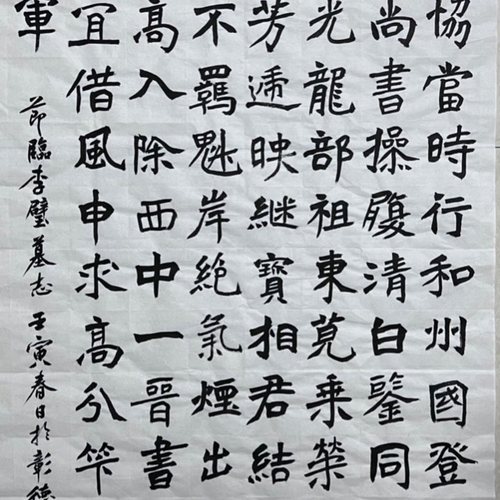 協當時行和州國登
尚書操履清白鑒同
光龍部祖東莞乘榮
芳遞映繼寶相君結
不羈魁岸絕氣煙出
高入除西中一晉書
宜借風申求高分
軍
節臨李璧墓志 壬寅春日於彰德